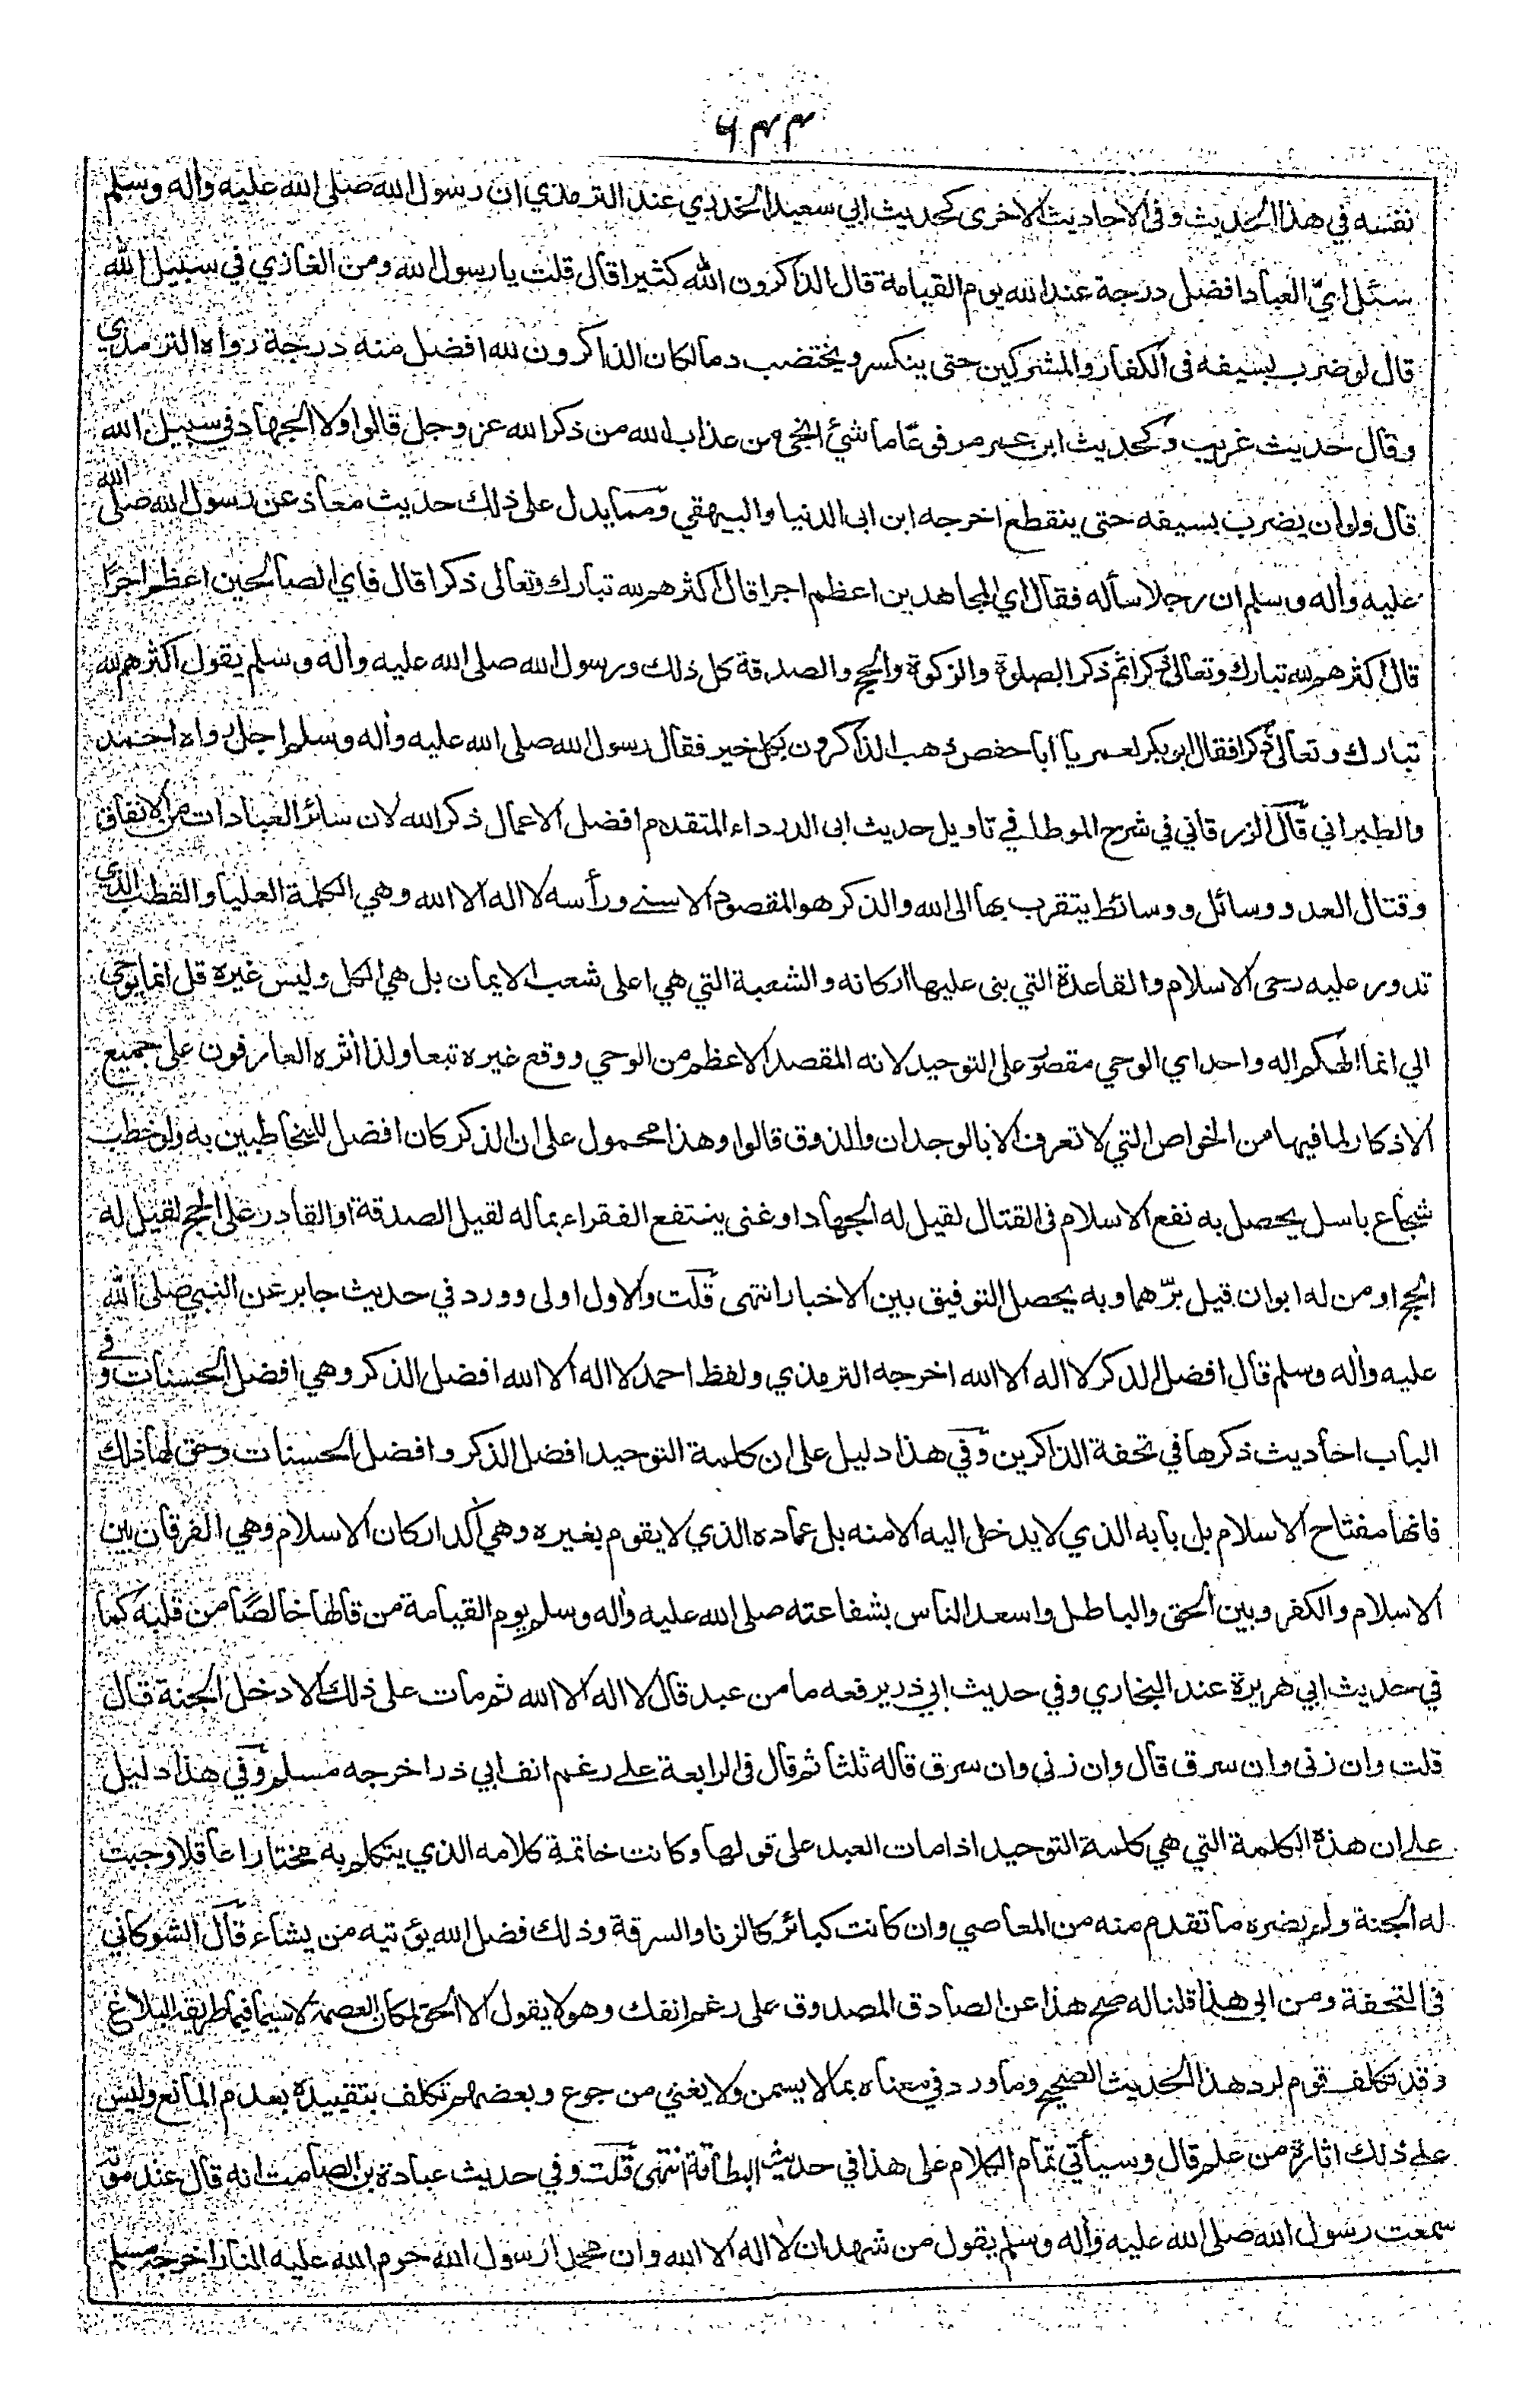 ۶۴۴
نفسه في هذا الحديث وفى الاحاديث الاخرى كحديث ابي سعيد الخدري عند الترمذي ان رسول الله صلى الله عليه وأله وسلم
سئل اي العباد افضل درجة عند الله يوم القيامة قال الذاكرون الله كثيرا قال قلت يا رسول الله ومن الغازي في سبيل الله
قال لو ضرب بسيفه فى الكفار والمشركين حتى ينكسر ويختضب دما لكان الذاكرون لله افضل منه درجة رواه الترمذي
وقال حديث غريب وكحديث ابن عمر مرفوعا ما شئ انجى من عذاب الله من ذكر الله عز وجل قالوا ولا الجهاد في سبيل الله
قال ولو ان يضرب بسيفه حتى ينقطع اخرجه ابن ابى الدنيا والبيهقي ومما يدل على ذلك حديث معاذ عن رسول الله صلى الله
عليه وأله وسلم ان رجلا سأله فقال اي المجاهدين اعظم اجرا قال اكثرهم لله تبارك وتعالى ذكرا قال فاي الصالحين اعظم اجرًا
قال اكثرهم لله تبارك وتعالى ذكرا ثم ذكر الصلوة والزكوة والحج والصدقة كل ذلك ورسول الله صلى الله عليه وأله وسلم يقول اكثرهم لله
تبارك وتعالى ذكرا فقال ابو بكر لعمر يا أبا حفص ذهب الذاكرون بكل خير فقال رسول الله صلى الله عليه وأله وسلم اجل رواه احمد
والطبراني قال الزرقاني في شرح الموطا في تاويل حديث ابى الدرداء المتقدم افضل الاعمال ذكر الله لان سائر العبادات من الانفاق
وقتال العدو وسائل ووسائط يتقرب بها الى الله والذكر هو المقصود الاسنے ورأسه لا اله الا الله وهي الكلمة العليا والقطب الذي
تدور عليه رحى الاسلام والقاعدة التي بنى عليها اركانه والشعبة التي هي اعلى شعب الايمان بل هي الكل وليس غيره قل انما يوحى
الي انما الهكم اله واحد اي الوحي مقصور على التوحيد لانه المقصد الاعظم من الوحي ووقع غيره تبعا ولذا أثره العارفون على جميع
الاذكار لما فيها من الخواص التي لا تعرف الا بالوجدان والذوق قالوا وهذا محمول على ان الذكر كان افضل للمخاطبين به ولو خطب
شجاع باسل يحصل به نفع الاسلام فى القتال لقيل له الجهاد او غنى ينتفع الفقراء بماله لقيل الصدقة او القادر على الحج لقيل له
الحج او من له ابوان قيل برّهما وبه يحصل التوفيق بين الاخبار انتهى قلت والاول اولى وورد في حديث جابر عن النبي صلى الله
عليه وأله وسلم قال افضل الذكر لا اله الا الله اخرجه الترمذي ولفظ احمد لا اله الا الله افضل الذكر وهي افضل الحسنات وفے
الباب احاديث ذكرها في تحفة الذاكرين وفي هذا دليل على ان كلمة التوحيد افضل الذكر وافضل الحسنات وحق لها ذلك
فانها مفتاح الاسلام بل بابه الذي لا يدخل اليه الا منه بل عماده الذي لا يقوم بغيره وهي أكد اركان الاسلام وهي الفرقان بين
الاسلام والكفر وبين الحق والباطل واسعد الناس بشفاعته صلى الله عليه وأله وسلم يوم القيامة من قالها خالصًا من قلبه كما
في حديث ابي هريرة عند البخاري وفي حديث ابي ذر يرفعه ما من عبد قال لا اله الا الله ثم مات على ذلك الا دخل الجنة قال
قلت وان زنى وان سرق قال وان زنى وان سرق قاله ثلثا ثم قال فى الرابعة علے رغم انف ابي ذر اخرجه مسلم وفي هذا دليل
علے ان هذه الكلمة التي هي كلمة التوحيد اذا مات العبد على قولها وكانت خاتمة كلامه الذي يتكلم به مختارا عاقلا وجبت
له الجنة ولم يضره ما تقدم منه من المعاصي وان كانت كبائر كالزنا والسرقة وذلك فضل الله يؤتيه من يشاء قال الشوكاني
فى التحفة ومن ابى هذا قلنا له صح هذا عن الصادق المصدوق على رغم انفك وهو لا يقول الا الحق لمكان العصمة لا سيما فيما طريقه البلاغ
وقد تكلف قوم لرد هذا الحديث الصحيح وما ورد في معناه بما لا يسمن ولا يغني من جوع وبعضهم تكلف بتقييده بعدم المانع وليس
علے ذلك اثارة من علم قال وسيأتي تمام الكلام على هذا في حديث البطاقة انتهى قلت وفي حديث عبادة بن الصامت انه قال عند موته
سمعت رسول الله صلى الله عليه وأله وسلم يقول من شهد ان لا اله الا الله وان محمدا رسول الله حرم الله عليه النار اخرجه مسلم